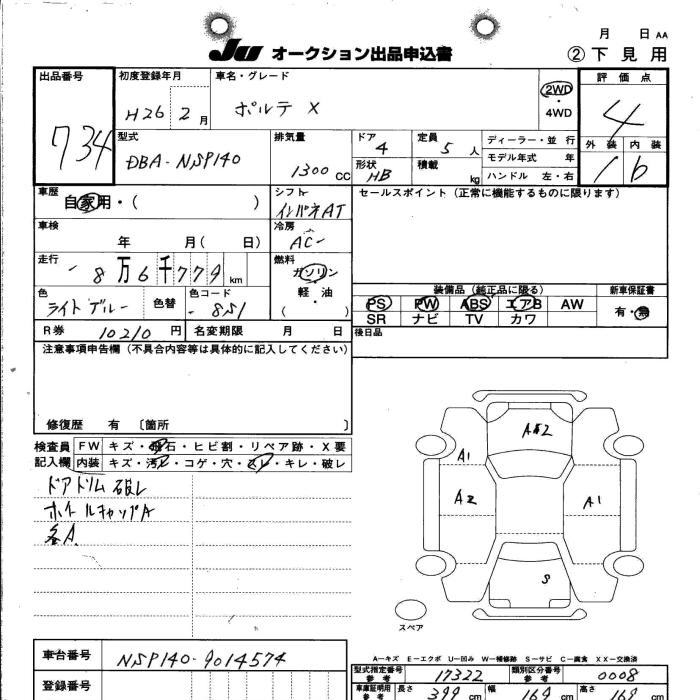 月 日 AA
JU オークション出品申込書 ②下見用
出品番号 初度登録年月 車名・グレード 評価点
734 H26 2月 ポルテ X 2WD 4WD 4
型式 排気量 ドア 定員 ディーラー・並行 外装 内装
DBA-NSP140 1300cc 4 5人 モデル年式 年 1 b
形状 積載 ハンドル 左・右
HB kg
車歴 シフト セールスポイント(正常に機能するものに限ります)
自家用・( ) インパネAT
車検 冷房
年 月( 日) AC
走行 燃料
8万6千779km ガソリン
軽・油
( )
色 色替 色コード 装備品(純正品に限る) 新車保証書
ライトブルー 8S1 PS PW ABS エアB AW 有・無
SR ナビ TV カワ
R券 10210円 名変期限 月 日 後日品
注意事項申告欄(不具合内容等は具体的に記入してください)
修復歴 有 〔箇所 〕
検査員 FW キズ・飛石・ヒビ割・リペア跡・X要
記入欄 内装 キズ・汚レ・コゲ・穴・スレ・キレ・破レ
ドアトリム破レ
ホイールキャップA
各A
A1
A2
A1
S
スペア
A-キズ E-エクボ U-凹み W-補修跡 S-サビ C-腐食 XX-交換済
車台番号 NSP140-9014574
型式指定番号 参考 17322 類別区分番号 参考 0008
登録番号
車庫証明用 参考 長さ 399cm 幅 169cm 高さ 169cm